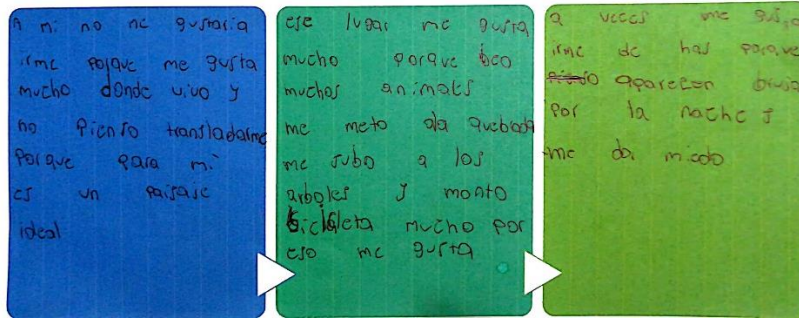 A mi no me gustaria
irme porque me gusta
mucho donde vivo y
no pienso transladarme
porque para mi
es un paisaje
ideal
ese lugar me gusta
mucho porque beo
muchos animales
me meto ala quebrada
me subo a los
arboles y monto
bicicleta mucho por
eso me gusta
a veces me gusta
irme de has porque
aparecen bruja
por la noche y
me da miedo